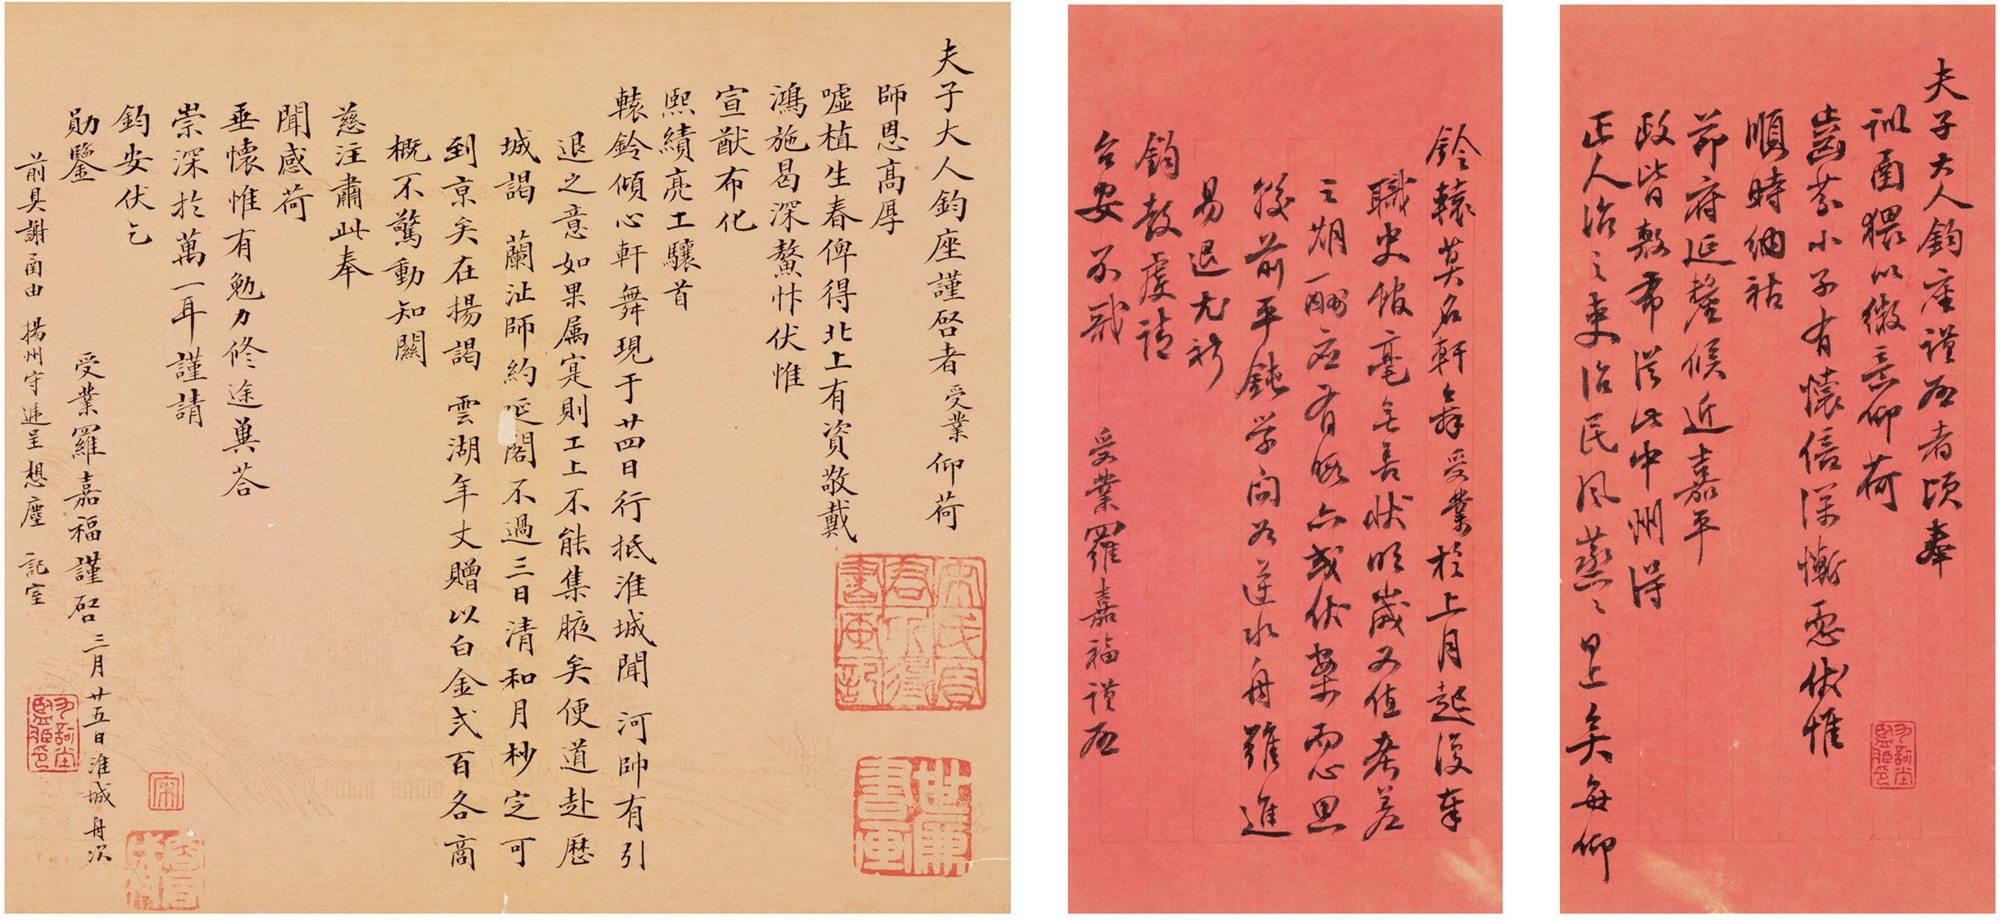 夫子大人鈞座謹啓者受業仰荷
師恩高厚
噓植生春俾得北上有資敬戴
鴻施曷深鰲忭伏惟
宣猷布化
熙績亮工驤首
轅鈴傾心軒舞現于廿四日行抵淮城聞 河帥有引
退之意如果属寔則工上不能集腋矣便道赴歷
城謁 蘭沚師約延閣不過三日清和月杪定可
到京矣在揚謁 雲湖年丈贈以白金弍百各商
概不驚動知關
慈注肅此奉
聞感荷
垂懷惟有勉力修途冀荅
崇深於萬一耳謹請
鈞安伏乞
勛鑒
受業羅嘉福謹啓 三月廿五日淮城舟次
前具謝函由 揚州守遞呈想塵 記室
夫子大人鈞座謹啟者頃奉
訓函猥以微意仰荷
齒芬小子有懷倍深慚恧伏惟
順時納祜
節府延釐候近嘉平
政皆敷布從此中州得
正人治之吏治民風蒸蒸日上矣每仰
鈴轅莫名軒舞受業於上月起復奉
職史館毫無善狀明歲又值考差
之期一酬應有暇亦或伏案而心思
後前平鈍學问为逆水舟雖進
易退尤祈
鈞教虔請
台安不戩
受業羅嘉福謹啟